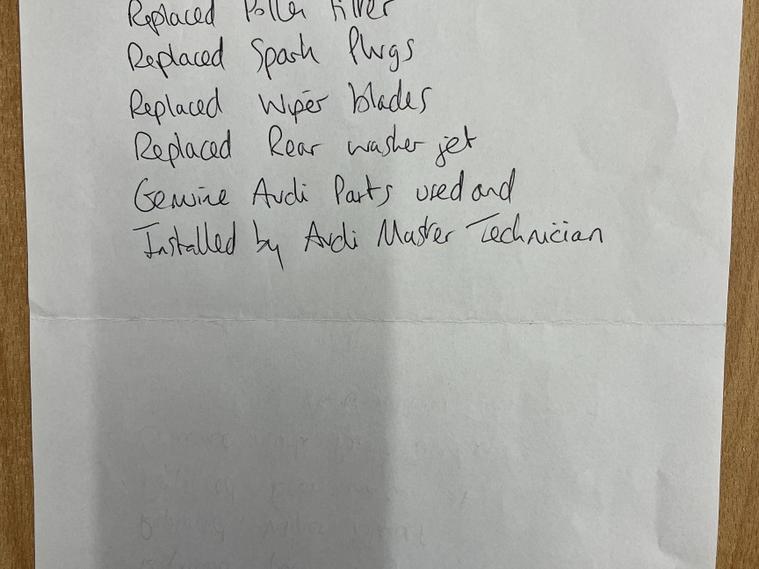 Replaced Pollen Filter
Replaced Spark Plugs
Replaced Wiper blades
Replaced Rear washer jet
Genuine Audi Parts used and
Installed by Audi Master Technician